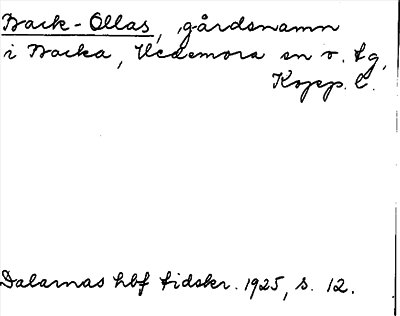 Back-Ollas, gårdsnamn
i Backa, Hedemora sn o. tg,
Kopp. l.
Dalarnas hbf tidskr. 1925, s. 12.